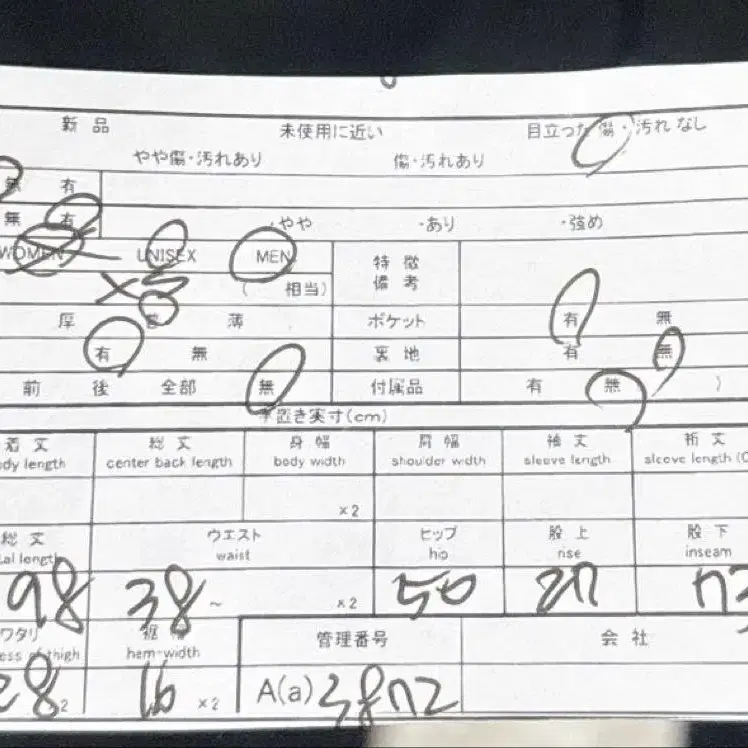 新品 未使用に近い 目立った傷・汚れなし
やや傷・汚れあり 傷・汚れあり
無 有
無 有 ・やや ・あり ・強め
WOMEN UNISEX MEN 特徴
備考
( 相当)
厚 普 薄 ポケット 有 無
有 無 裏地 有 無
前 後 全部 無 付属品 有 無 )
平置き実寸(cm)
着丈 総丈 身幅 肩幅 袖丈 裄丈
dy length center back length body width shoulder width sleeve length sleeve length (C
×2
総丈 ウエスト ヒップ 股上 股下
al length waist hip rise inseam
98 38 ~ ×2 50 27
ワタリ 裾幅 管理番号 会社
ess of thigh hem-width
28 2 16 ×2 A(a) 3872